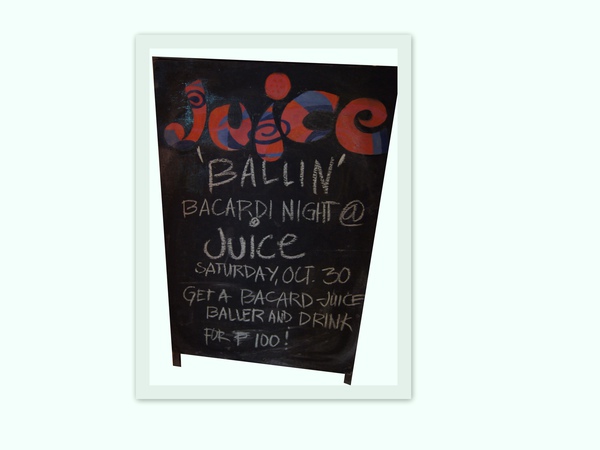 Juice
'BALLIN'
BACARDI NIGHT @
JUICE
SATURDAY, OCT. 30
GET A BACARD-JUICE
BALLER AND DRINK
FOR ₱ 100!